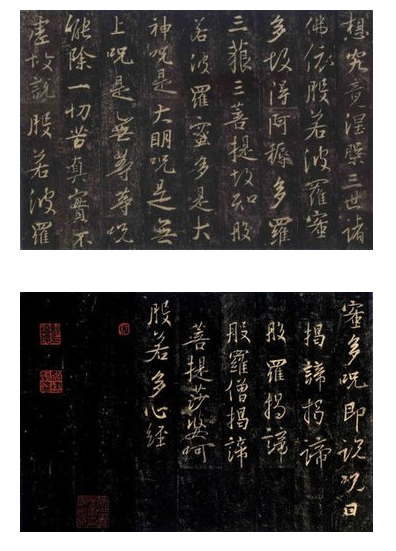 想究竟涅槃三世诸
佛依般若波羅蜜
多故得阿耨多羅
三藐三菩提故知般
若波羅蜜多是大
神呪是大明呪是無
上呪是無等等呪
能除一切苦真實不
虚故説般若波羅
蜜多呪即説呪曰
揭諦揭諦
般羅揭諦
般羅僧揭諦
菩提莎婆呵
般若多心經